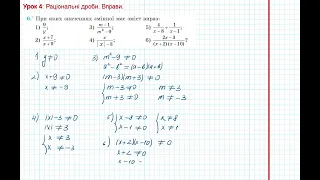 Урок 4: Раціональні дроби. Вправи.
6. При яких значеннях змінної має зміст вираз:
1) 9/y; 3) (m-1)/(m²-9); 5) 4/(x-8) + 1/(x-1);
2) (x+7)/(x+9); 4) x/(|x|-3); 6) (2x-3)/((x+2)(x-10))?
1) y≠0
2) x+9≠0
x≠-9
3) m²-9≠0
a²-b²=(a-b)(a+b)
(m-3)(m+3)≠0
{ m-3≠0 { m≠3
m+3≠0 m≠-3
4) |x|-3≠0
|x|≠3
{ x≠3
x≠-3
5) { x-8≠0 { x≠8
x-1≠0 x≠1
6) (x+2)(x-10)≠0
{ x+2≠0
x-10